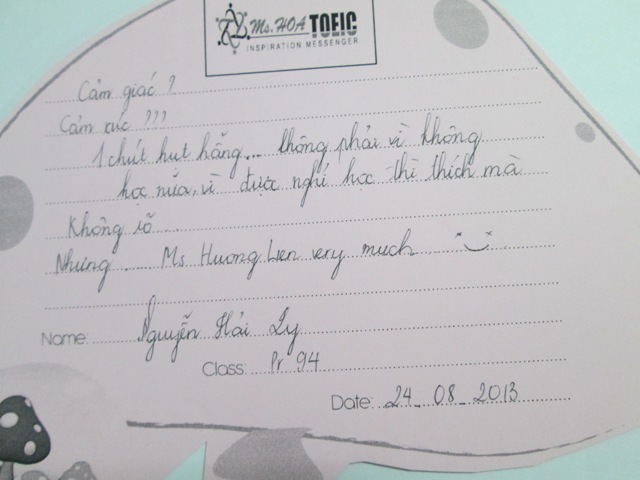 Ms. HOA TOEIC
INSPIRATION MESSENGER
Cảm giác ?
Cảm xúc ???
1 chút hụt hẫng... không phải vì không
học nữa, vì được nghỉ học thì thích mà
Không rõ...
Nhưng..... Ms Hương Lien very much
Name: Nguyễn Hải Ly
Class: Pr 94
Date: 24_08_2013